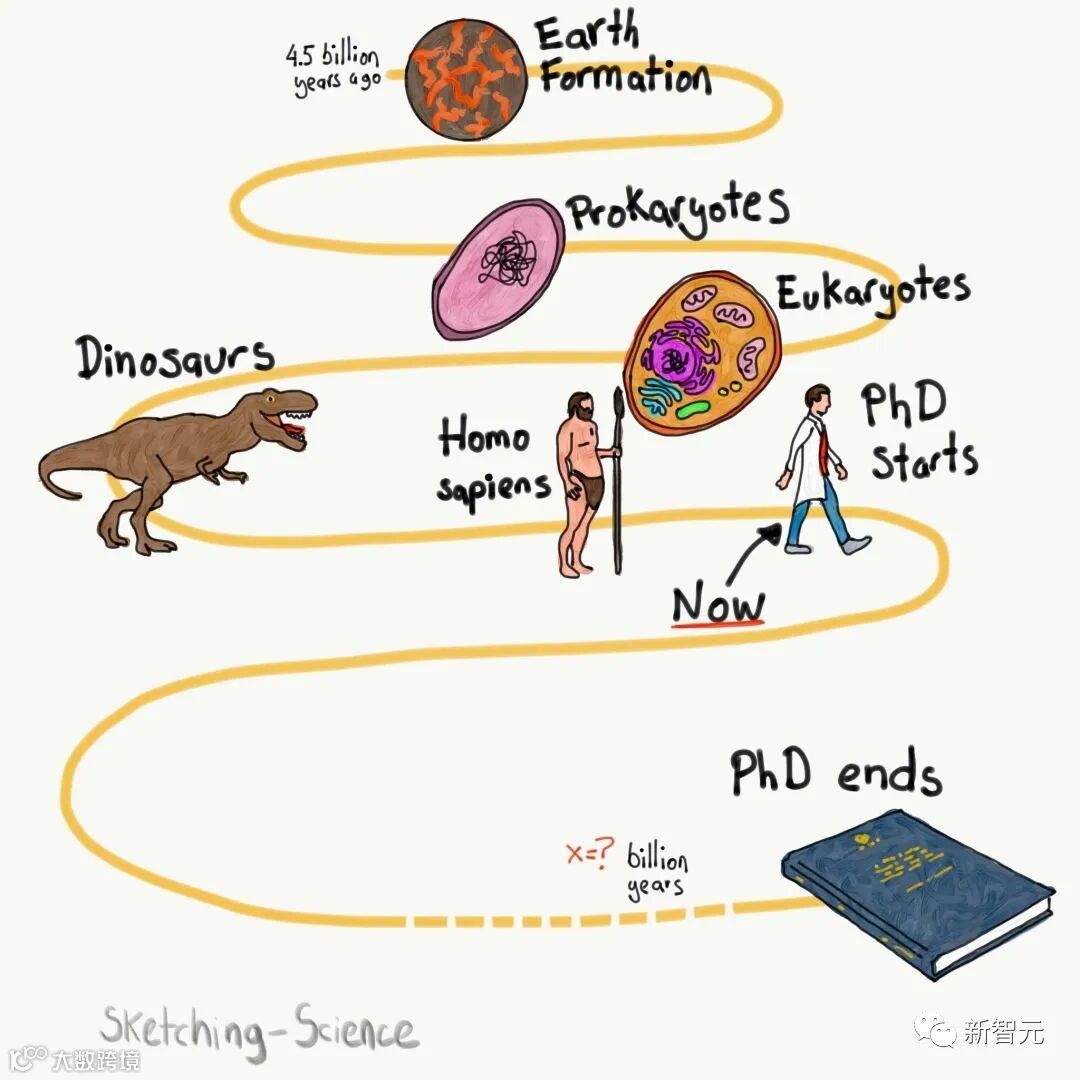 4.5 billion
years ago
Earth
Formation
Prokaryotes
Eukaryotes
Dinosaurs
Homo
sapiens
PhD
Starts
Now
PhD ends
x=? billion
years
Sketching-Science
大数跨境
新智元